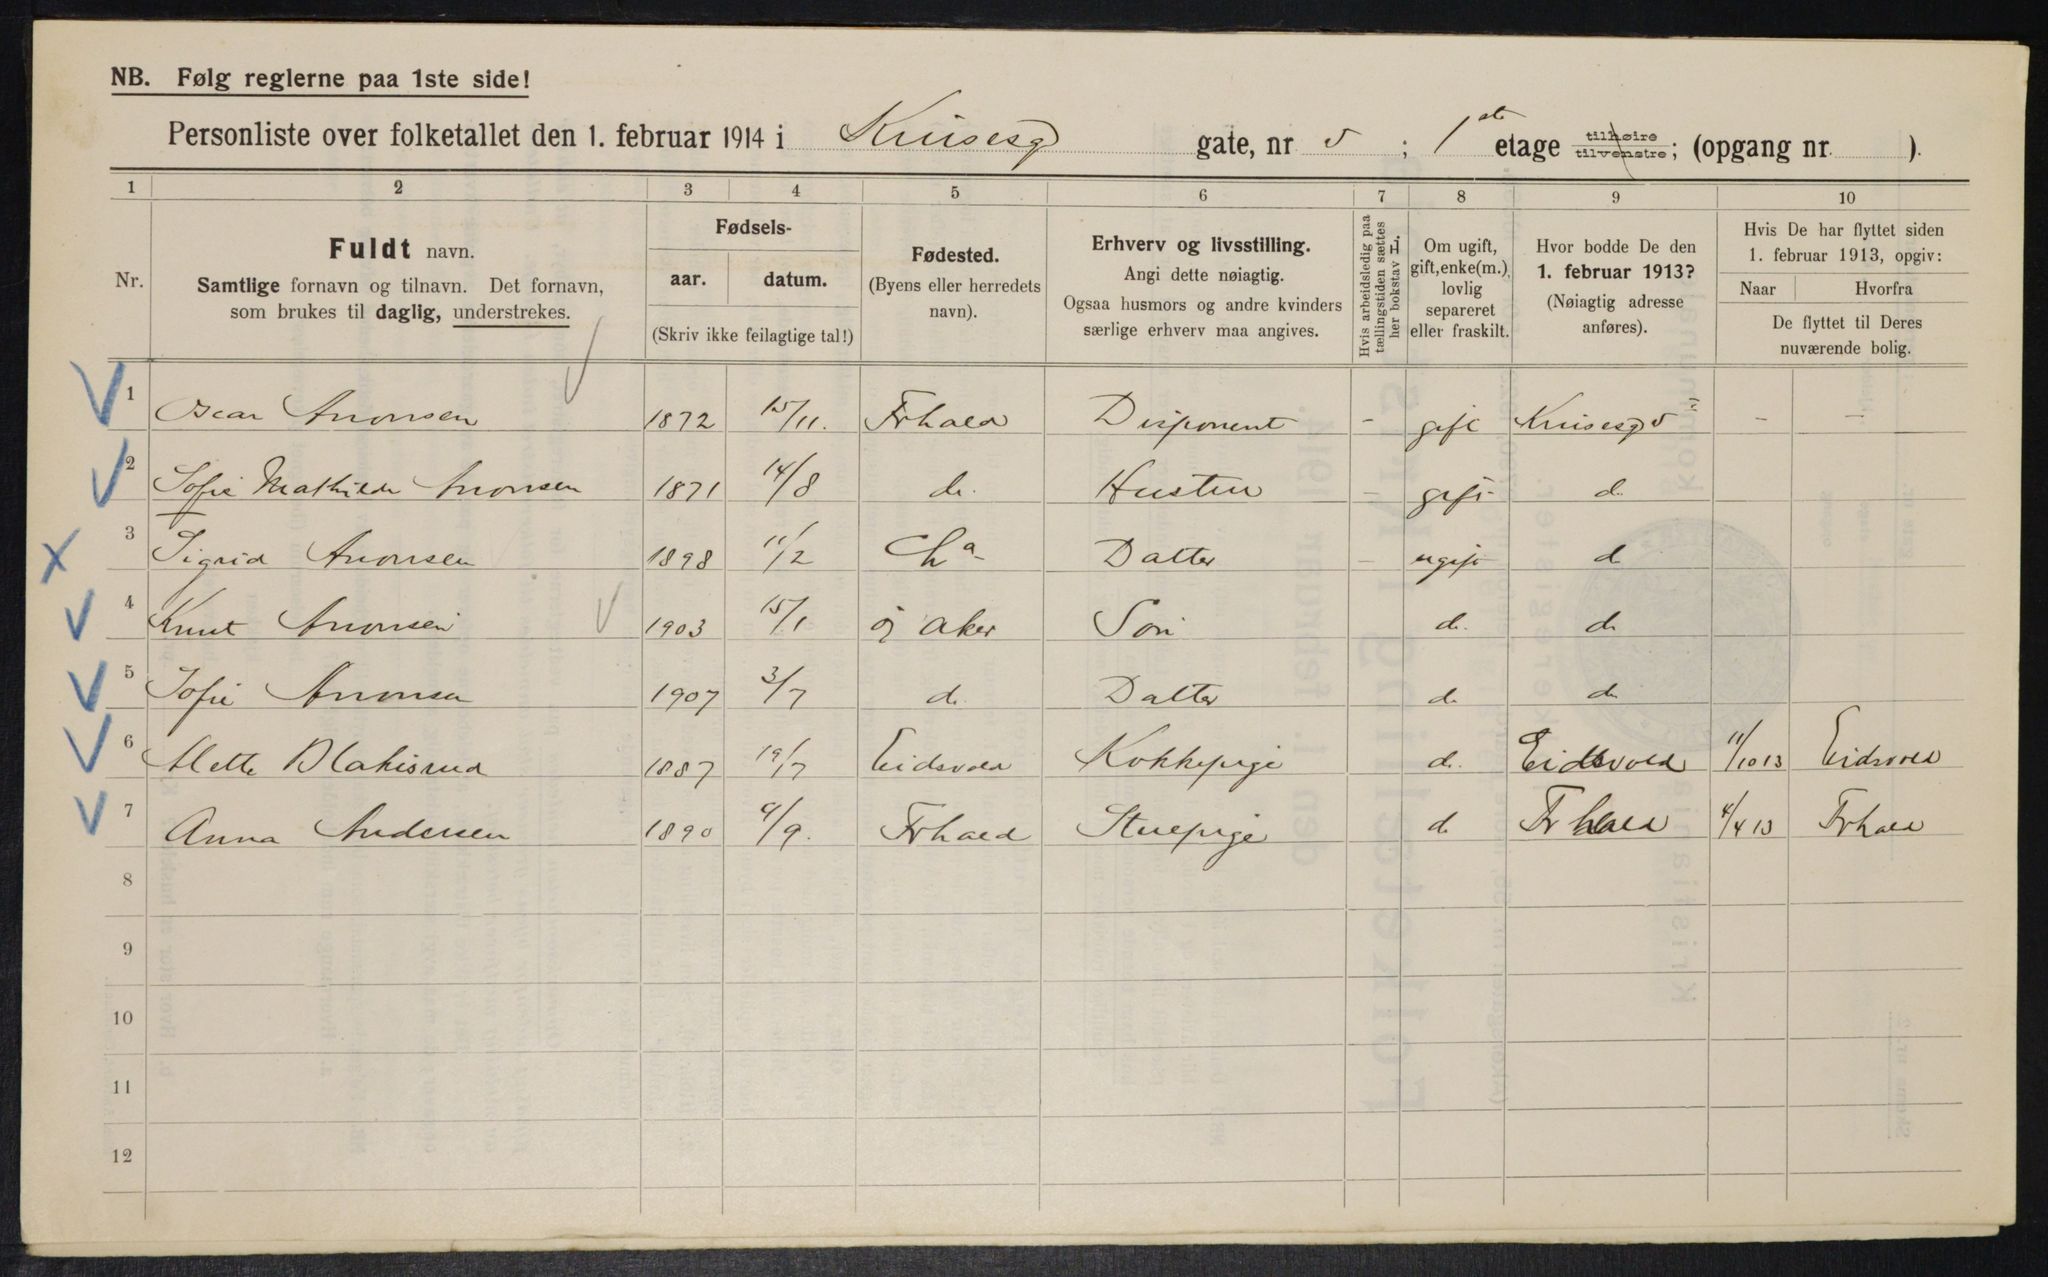 NB. Følg reglerne paa 1ste side!
Personliste over folketallet den 1. februar 1914 i Krusesg gate, nr 5 ; 1ste etage tilhøire tilvenstre; (opgang nr. ).
1 2 3 4 5 6 7 8 9 10
Nr.
Fuldt navn.
Samtlige fornavn og tilnavn. Det fornavn,
som brukes til daglig, understrekes.
Fødsels-
aar. datum.
(Skriv ikke feilagtige tal!)
Fødested.
(Byens eller herredets
navn).
Erhverv og livsstilling.
Angi dette nøiagtig.
Ogsaa husmors og andre kvinders
særlige erhverv maa angives.
Hvis arbeidsledig paa
tællingstiden sættes
her bokstav H.
Om ugift,
gift, enke(m.),
lovlig
separeret
eller fraskilt.
Hvor bodde De den
1. februar 1913?
(Nøiagtig adresse
anføres).
Hvis De har flyttet siden
1. februar 1913, opgiv:
Naar Hvorfra
De flyttet til Deres
nuværende bolig.
1 Oscar Aronsen 1872 15/11. Frhald Disponent - gift Krusesg 5 - -
2 Sofie Mathilde Aronsen 1871 14/8 do. Hustru - gift do
3 Sigrid Aronsen 1898 11/2 Cha Datter - ugift do
4 Knut Aronsen 1903 15/1 Aker Søn do. do
5 Sofie Aronsen 1907 3/7 do. Datter do do
6 Mette 1887 19/7 Eidsvold Kokkepige do. Eidsvold 11/10 13 Eidsvold
7 Anna Andersen 1890 9/9. Frhald Stuepige do Frhald 4/4 13 Frhald
8
9
10
11
12